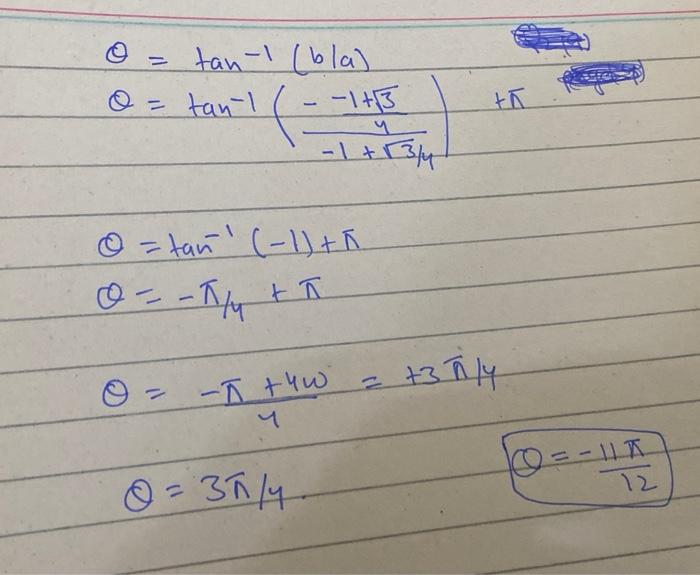 θ = tan⁻¹ (b/a)
θ = tan⁻¹ ( (- -1+√3 / 4) / (-1 + √3/4) ) +π
θ = tan⁻¹ (-1) + π
θ = -π/4 + π
θ = (-π + 4π) / 4 = +3π/4
θ = 3π/4.
θ = -11π/12